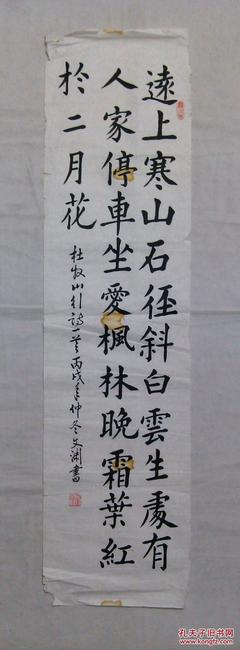 遠上寒山石径斜白雲生處有
人家停車坐愛楓林晚霜葉紅
於二月花
杜牧山行詩一首丙戌年仲冬文渊書
孔夫子旧书网